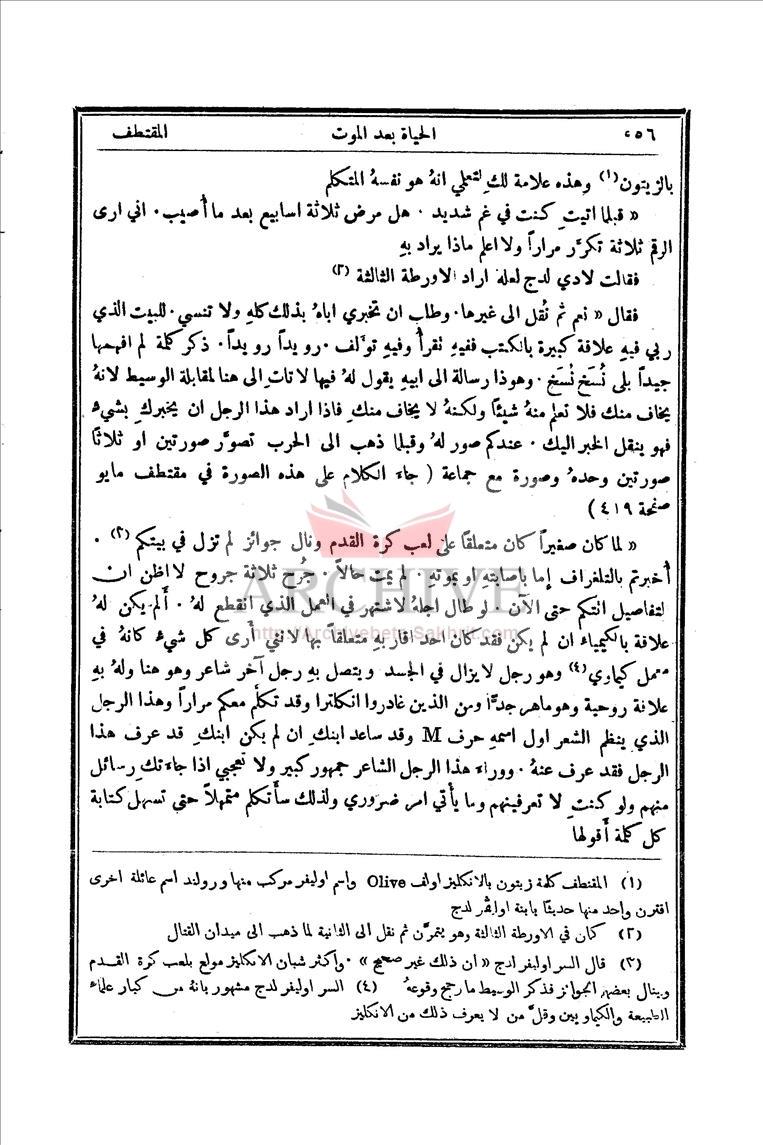 ٢٥٦ الحياة بعد الموت المقتطف
بالزيتون(١) وهذه علامة لكِ لتعلمي انهُ هو نفسهُ المتكلم
« قبلما اتيتِ كنت في غم شديد . هل مرض ثلاثة اسابيع بعد ما أُصيب . اني ارى
الرقم ثلاثة تكرَّر مراراً ولا اعلم ماذا يراد بهِ
فقالت لادي لدج لعله اراد الاورطة الثالثة (٢)
فقال « نعم ثم نُقل الى غيرها . وطلب ان تخبري اباهُ بذلك كلهِ ولا تنسي . للبيت الذي
ربي فيهِ علاقة كبيرة بالكتب ففيهِ تقرأُ وفيهِ تؤَلف . رويداً رويداً . ذكر كلمة لم افهمها
جيداً بلى نُسَخ نُسَخ . وهوذا رسالة الى ابيهِ يقول لهُ فيها لا تات الى هنا لمقابلة الوسيط لانهُ
يخاف منك فلا تعلم منهُ شيئًا ولكنهُ لا يخاف منكِ فاذا اراد هذا الرجل ان يخبركِ بشيءٍ
فهو ينقل الخبر اليك . عندكم صور لهُ وقبلما ذهب الى الحرب تصوَّر صورتين او ثلاثًا
صورتين وحدهُ وصورة مع جماعة ( جاءَ الكلام على هذه الصورة في مقتطف مايو
صفحة ٤١٩ )
« لما كان صغيراً كان متعلقاً على لعب كرة القدم ونال جوائز لم تزل في بيتكم (٣) .
أُخبرتم بالتلغراف إما باصابتهِ او بموتهِ . لم يمت حالاً . جُرح ثلاثة جروح لا اظن ان
التفاصيل اتتكم حتى الآن . لو طال اجلهُ لاشتهر في العمل الذي انقطع لهُ . أَلم يكن لهُ
علاقة بالكيمياء ان لم يكن فقد كان احد اقاربهِ متعلقاً بها لانني أَرى كل شيءٍ كانهُ في
معمل كيماوي (٤) وهو رجل لا يزال في الجسد ويتصل بهِ رجل آخر شاعر وهو هنا ولهُ بهِ
علاقة روحية وهو ماهر جدًّا ومن الذين غادروا انكلترا وقد تكلَّم معكم مراراً وهذا الرجل
الذي ينظم الشعر اول اسمهِ حرف M وقد ساعد ابنكِ ان لم يكن ابنكِ قد عرف هذا
الرجل فقد عرف عنهُ . ووراءَ هذا الرجل الشاعر جمهور كبير ولا تعجبي اذا جاءتكِ رسائل
منهم ولو كنتِ لا تعرفينهم وما يأتي امر ضروري ولذلك سأَتكلم متمهلاً حتى تسهل كتابة
كل كلمة أَقولها
(١) المقتطف كلمة زيتون بالانكليز اولف Olive واسم اوليفر مركب منها ورولند اسم عائلة اخرى
اقترن واحد منها حديثًا بابنة اوليفر لدج
(٢) كان في الاورطة الثالثة وهو يتمرَّن ثم نقل الى الثانية لما ذهب الى ميدان القتال
(٣) قال السر اوليفر لدج « ان ذلك غير صحيح » . واكثر شبان الانكليز مولع بلعب كرة القدم
وينال بعضهم الجوائز فذكر الوسيط ما رجح وقوعهُ (٤) السر اوليفر لدج مشهور بانهُ من كبار علماء
الطبيعة والكيماويين وقلَّ من لا يعرف ذلك من الانكليز
ARCHIVE
http://Archivebeta.Sakhrit.com